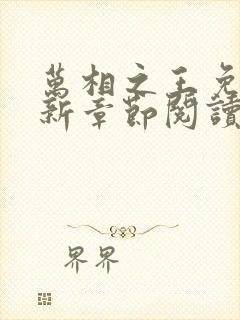 萬相之王免
新章節閱讀
界界